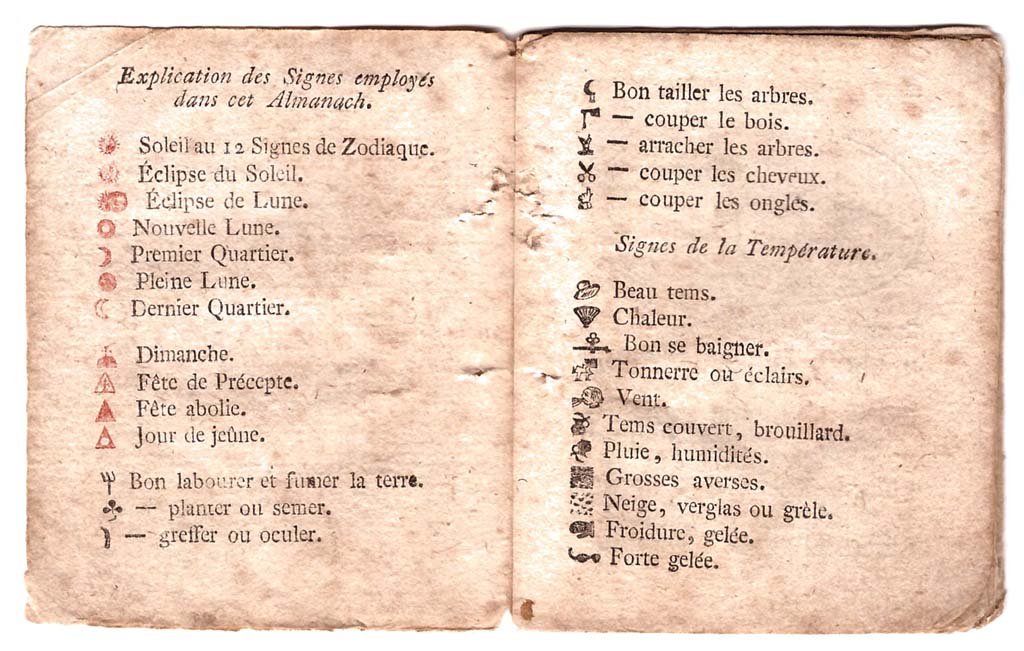 Explication des Signes employés
dans cet Almanach.
Soleil au 12 Signes de Zodiaque.
Éclipse du Soleil.
Éclipse de Lune.
Nouvelle Lune.
Premier Quartier.
Pleine Lune.
Dernier Quartier.
Dimanche.
Fête de Précepte.
Fête abolie.
Jour de jeûne.
Bon labourer et fumer la terre.
— planter ou semer.
— greffer ou oculer.
Bon tailler les arbres.
— couper le bois.
— arracher les arbres.
— couper les cheveux.
— couper les ongles.
Signes de la Température.
Beau tems.
Chaleur.
Bon se baigner.
Tonnerre ou éclairs.
Vent.
Tems couvert, brouillard.
Pluie, humidités.
Grosses averses.
Neige, verglas ou grèle.
Froidure, gelée.
Forte gelée.